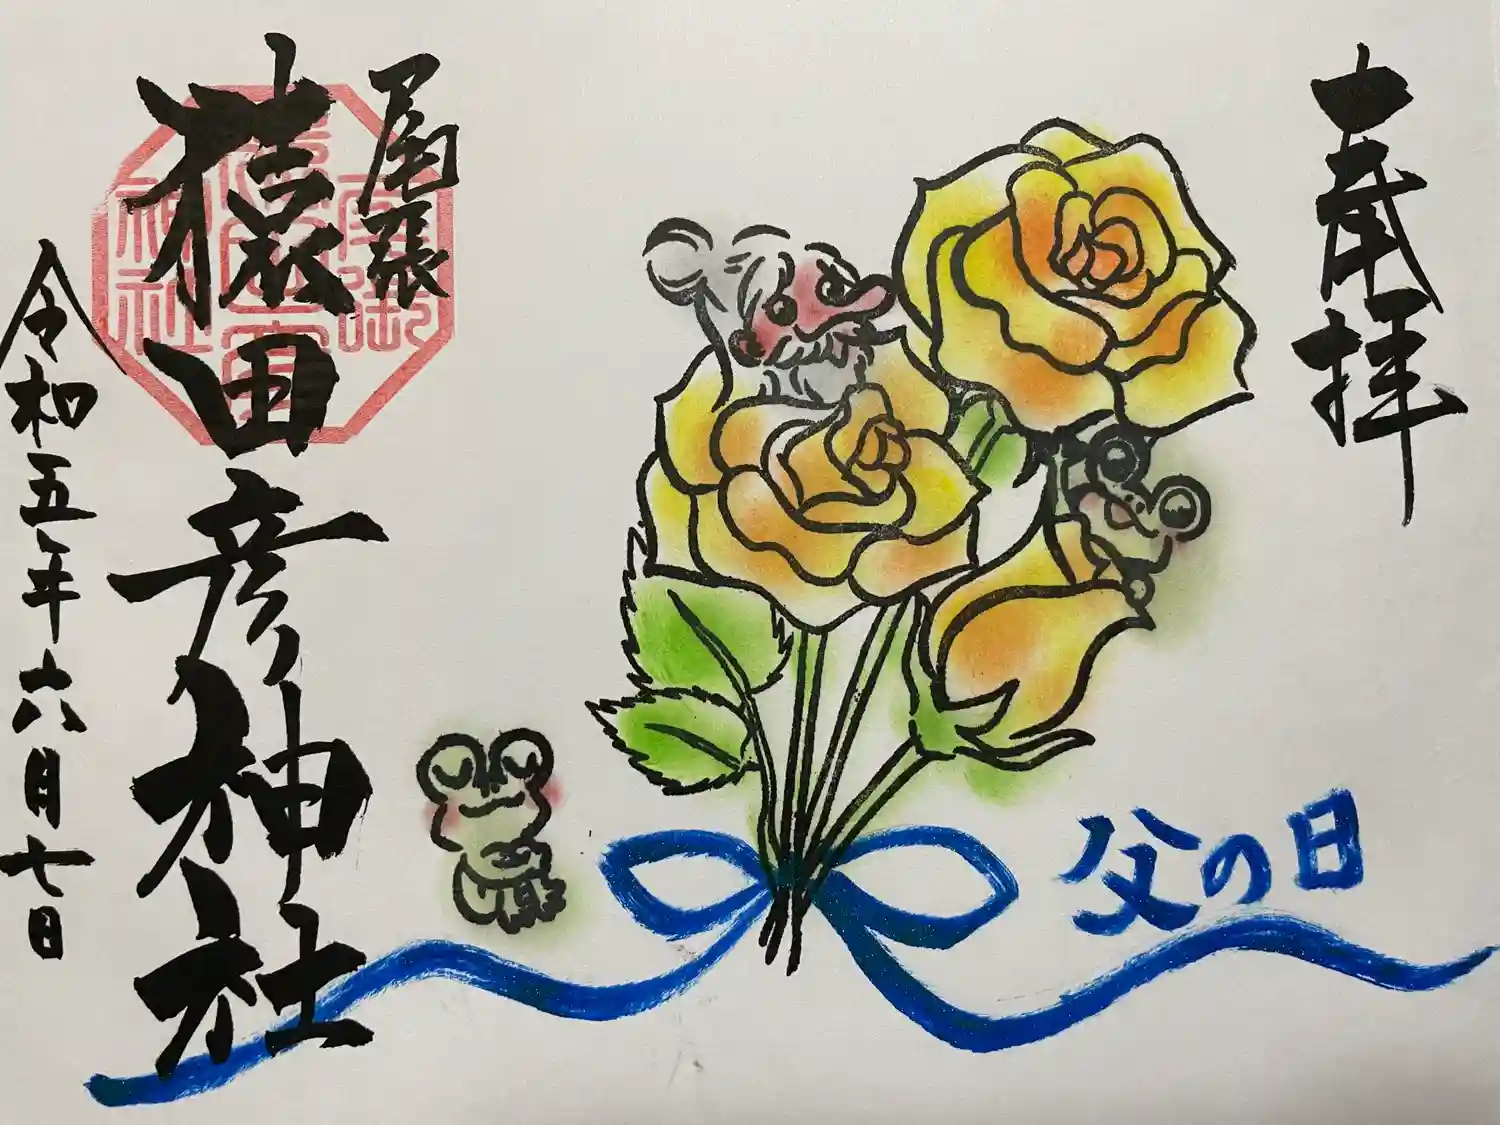 奉拝
父の日
尾張
猿田彦神社
令和五年六月七日